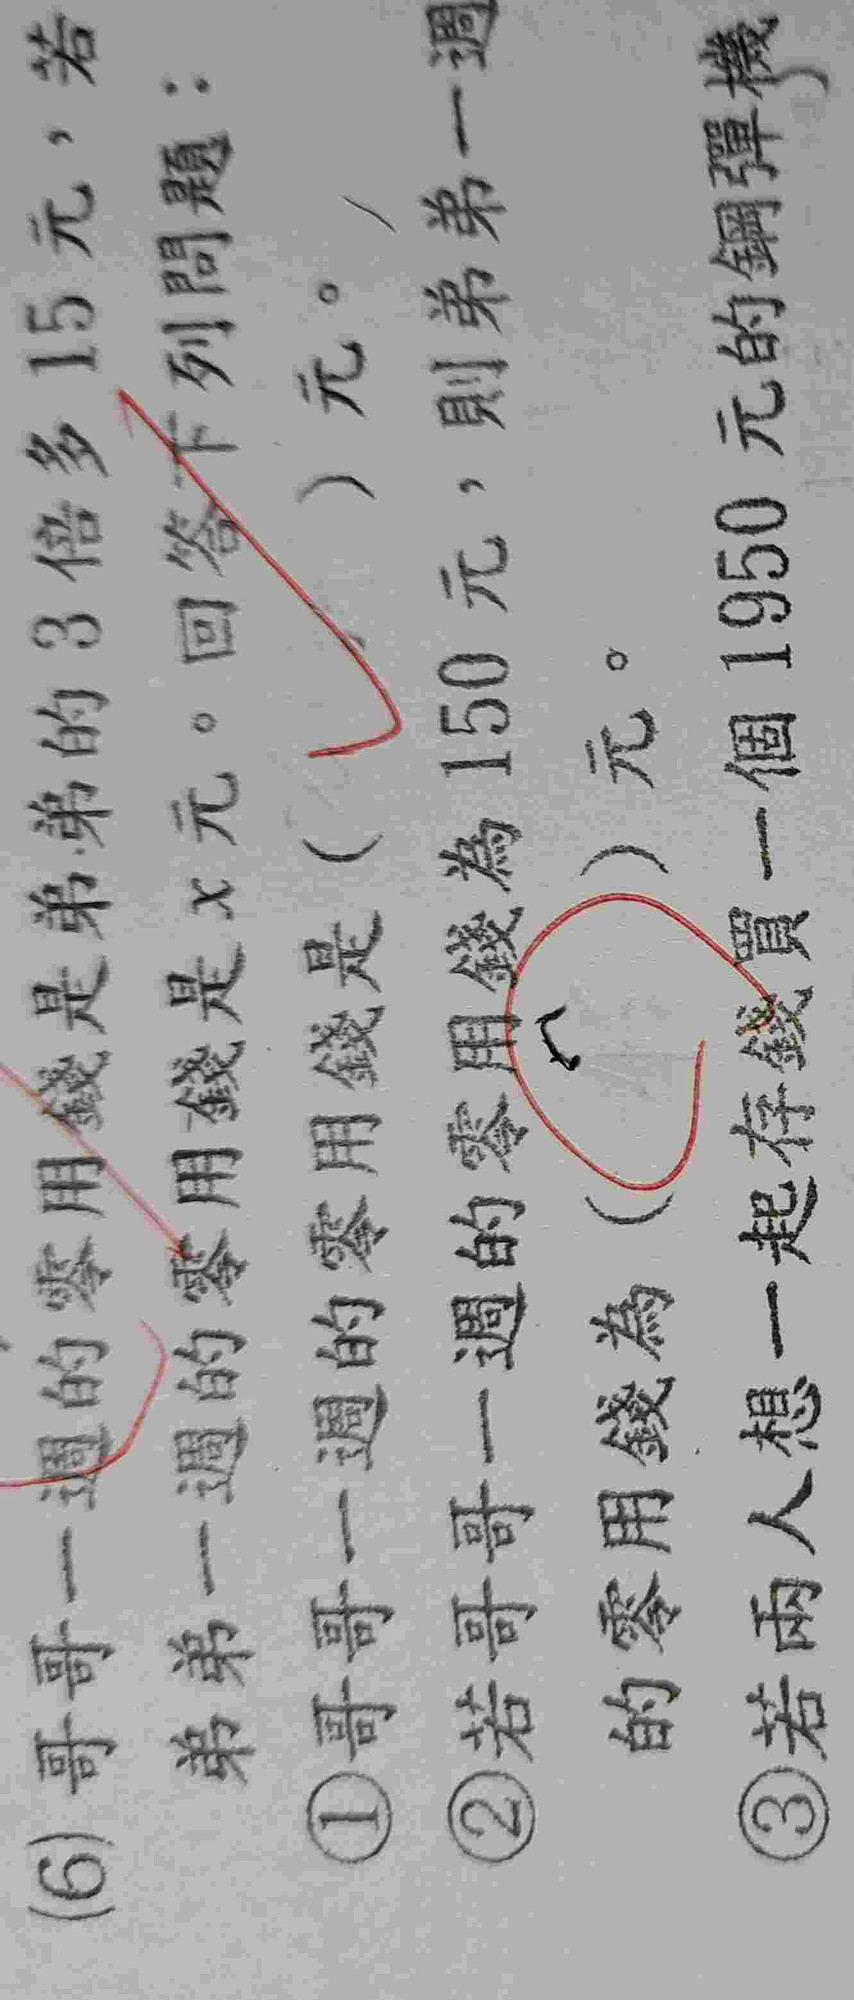 (6) 哥哥一週的零用錢是弟弟的3倍多15元，若
弟弟一週的零用錢是x元。回答下列問題：
①哥哥一週的零用錢是（　　）元。
②若哥哥一週的零用錢為150元，則弟弟一週
的零用錢為（　　）元。
③若兩人想一起存錢買一個1950元的鋼彈機